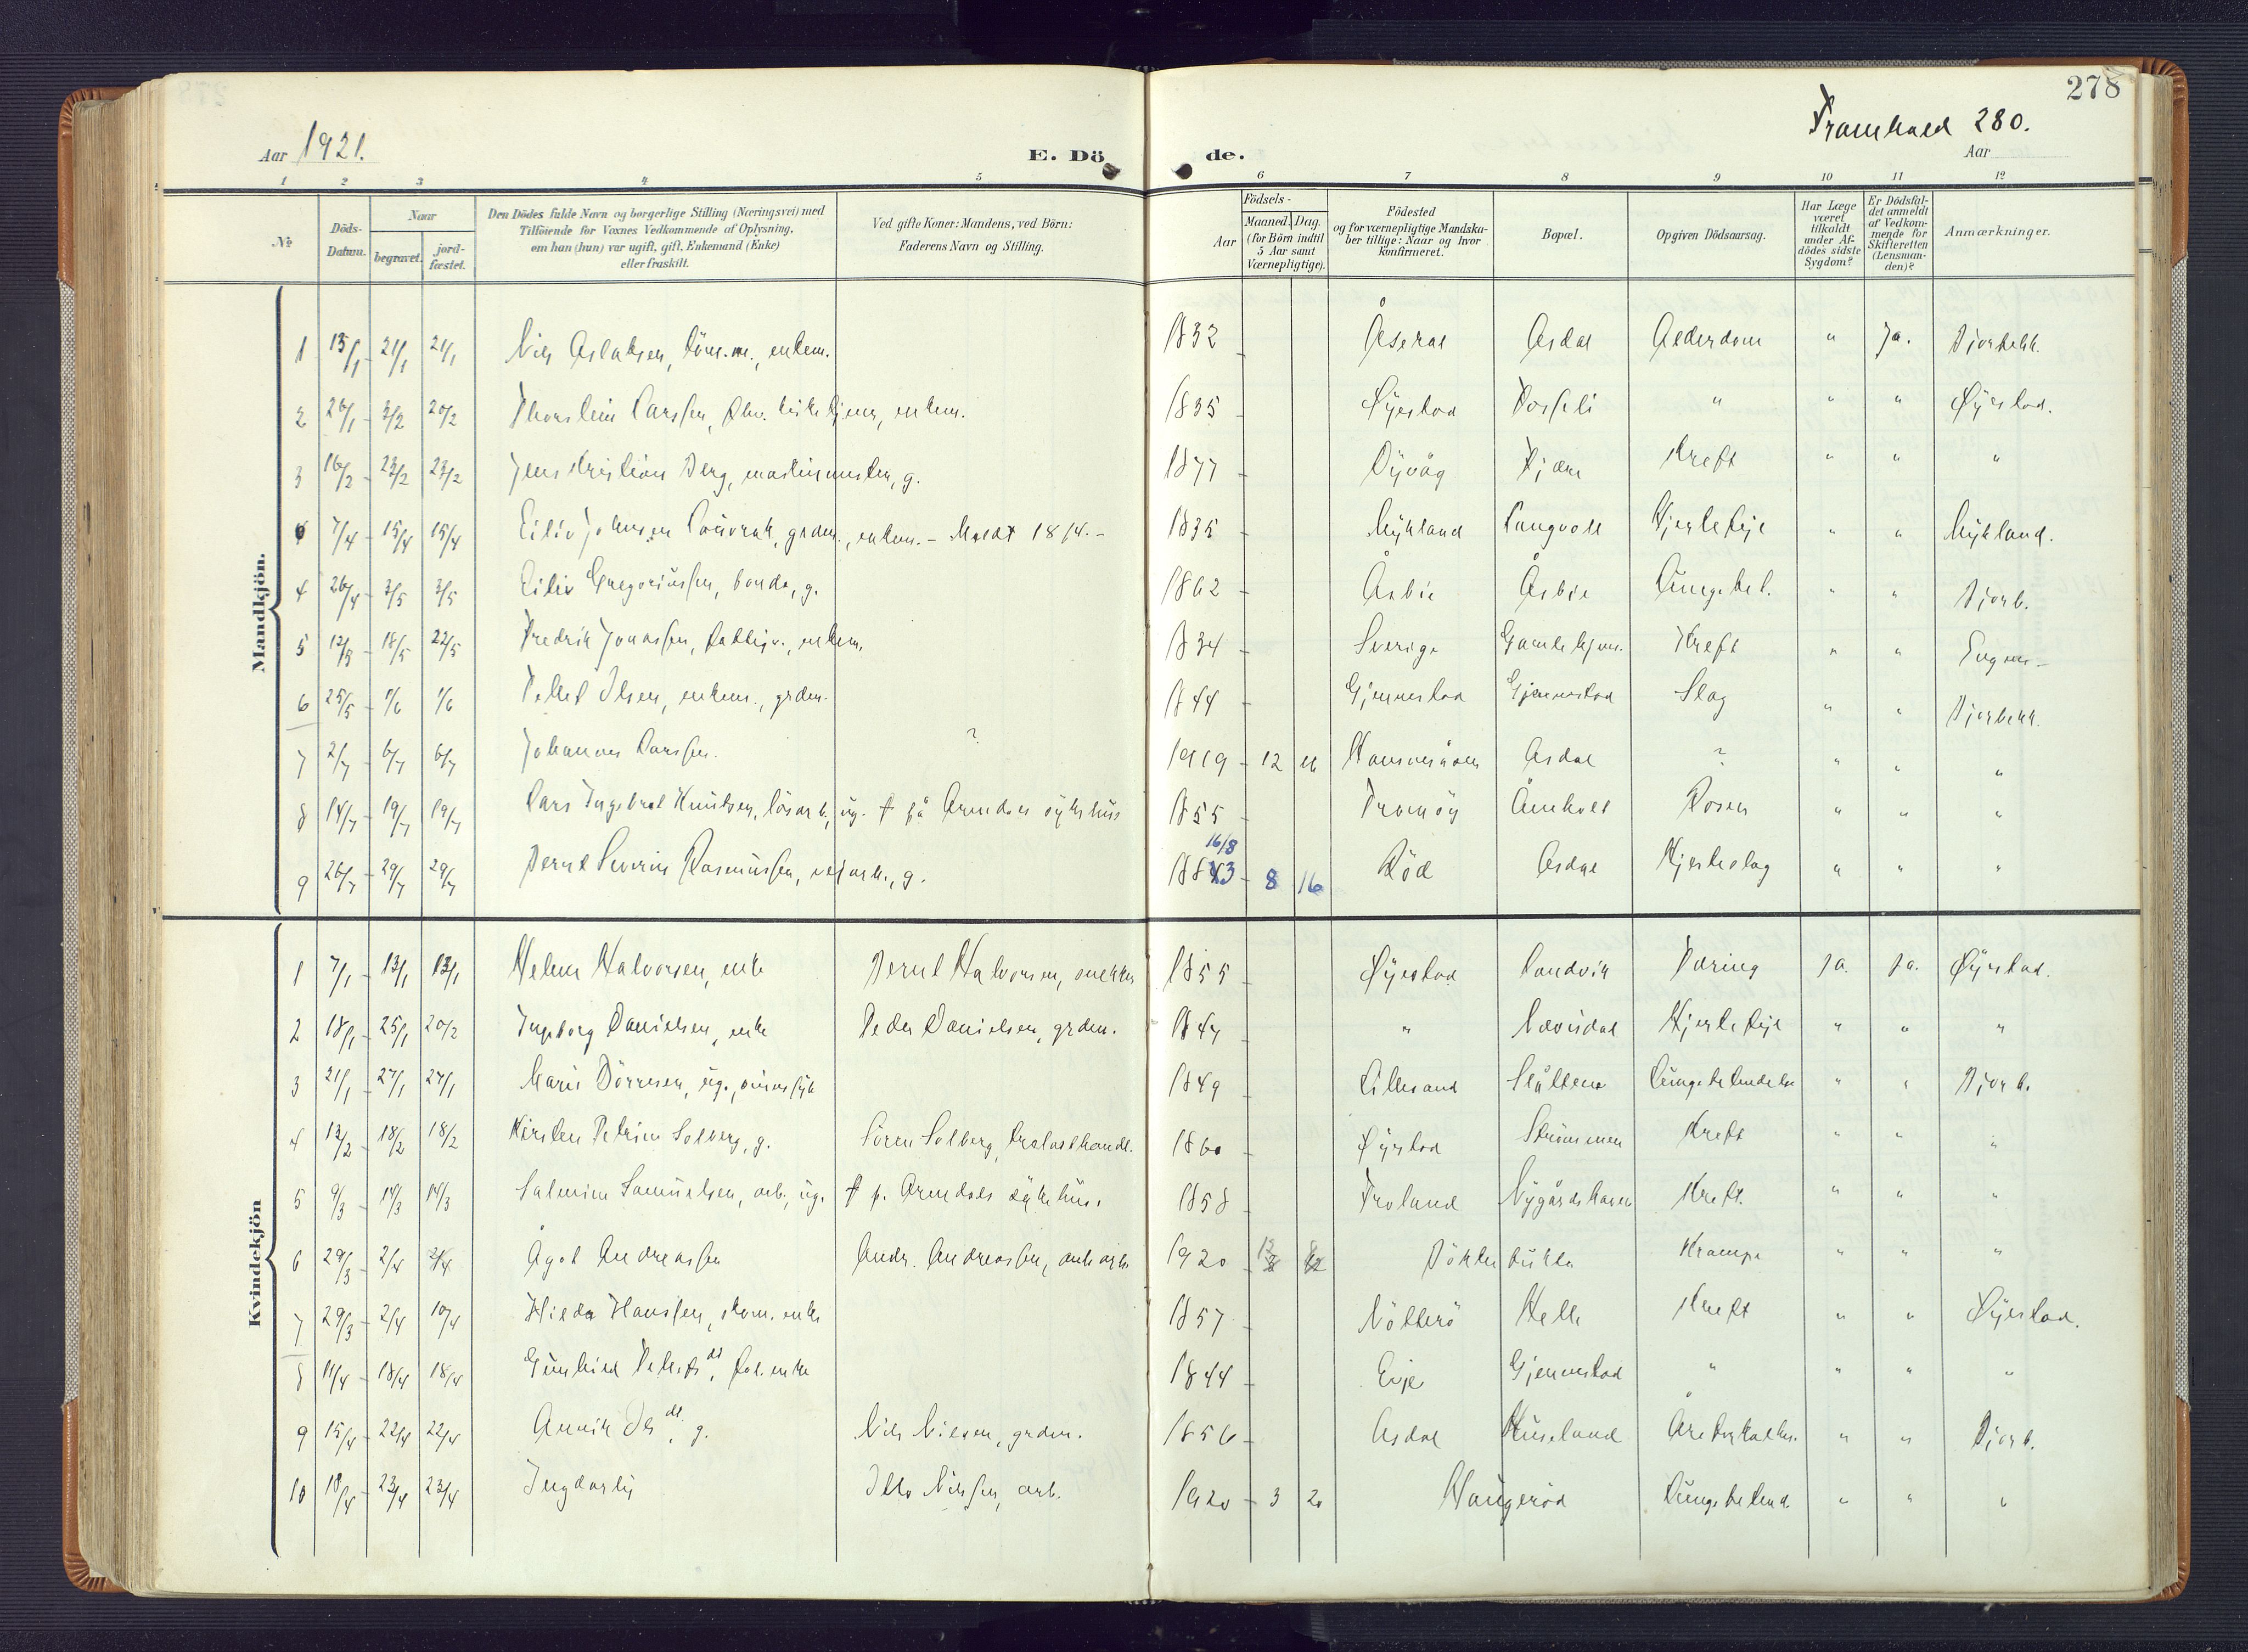 278
Framhald 280.
Aar 1921.
E. Dö de.
Aar
1 2 3 4 5 6 7 8 9 10 11 12
№
Döds-Datum.
Naar
begravet.
jord-fæstet.
Den Dödes fulde Navn og borgerlige Stilling (Næringsvei) med
Tilföiende for Voxnes Vedkommende af Oplysning,
om han (hun) var ugift, gift, Enkemand (Enke)
eller fraskilt.
Ved gifte Koner: Mandens, ved Börn:
Faderens Navn og Stilling.
Födsels-
Aar
Maaned. Dag.
(for Börn indtil
5 Aar samt
Værnepligtige).
Födested
og for værnepligtige Mandska-
ber tillige: Naar og hvor
konfirmeret.
Bopæl.
Opgiven Dödsaarsag.
Har Læge
været
tilkaldt
under Af-
dödes sidste
Sygdom?
Er Dödsfal-
det anmeldt
af Vedkom-
mende for
Skifteretten
(Lensman-
den)?
Anmærkninger.
Mandkjön.
1 13/1 21/1 21/1 Nils Aslaksen, enkem. 1832 Åseral Asdal Alderdom " Ja. Bjorbekk.
2 26/1 3/2 20/2 Thorstein Larssen, enkem. 1835 Øyestad Fosseli " " " Øyestad.
3 16/2 23/2 23/2 Jens Kristian Berg, maskinmester, g. 1877 Dyvåg Kreft " " "
4 7/4 15/4 15/4 Eiliv Johnsen grdm., enkem. - Meldt 18/4. - 1835 Mykland Langvoll Hjertefeil " " Mykland.
4 26/4 3/5 3/5 Eiliv Gregoriussen, bonde, g. 1862 Åsbie Åsbie Lungebet. " " Bjorb.
5 12/5 18/5 22/5 Fredrik Jonassen, enkem. 1834 Sverige Gamlehjem. Kreft " "
6 25/5 1/6 1/6 Tellef Olsen, enkem., grdm. 1844 Gjennestad Gjennestad Slag " " Bjorbekk.
7 2/7 6/7 6/7 Johannes Larssen. ? 1919 12 Asdal ? " " "
8 14/7 19/7 19/7 Lars Ingebret Knutsen, lösarb., ug. † på Arendals sykehus 1855 Tromöy Åmholt Rosen " " "
9 26/7 29/7 29/7 Bernt Severin Rasmussen, veiarb., g. 16/8 1883 8 16 Röd Asdal Hjerteslag " " "
Kvindekjön
1 7/1 13/1 13/1 Helene Halvorsen, enke Bernt Halvorsen, snekker 1855 Øyestad Sandvik Tæring ja. ja. Øyestad.
2 18/1 25/1 20/2 Ingeborg Danielsen, enke Peder Danielsen, grdm. 1847 " Nævisdal Hjertefeil " " "
3 21/1 27/1 27/1 Marie Dörresen, ug., sinnssyk 1849 Lillesand Slåttene Lungebetendelse " " Bjorb.
4 12/2 18/2 18/2 Kirsten Petrine Solberg, g. Sören Solberg, trelasthandl. 1860 Øyestad Strömmen Kreft " " "
5 9/3 14/3 14/3 Salmine Samuelsen, arb., ug. † p. Arendals sykehus. 1858 Froland Nygårdshaven Kreft. " " "
6 29/3 2/4 2/4 Ågot Andreassen Andr. Andreassen, 1920 12 Krampe " " "
7 29/3 2/4 10/4 Hilda Hanssen, skom. enke 1857 Nötterö Helle Kreft " " Øyestad.
8 11/4 18/4 18/4 Gunhild Tellefs dt, enke 1844 Evje Gjennestad " " " "
9 15/4 22/4 22/4 Annik Ols dt., g. Nils Nilsen, grdm. 1856 Asdal Huseland Åreforkalkn. " " Bjorb.
10 18/4 23/4 23/4 Ingdarlig Otto Nilssen, arb. 1920 3 20 Haugeröd Lungebetend. " " "